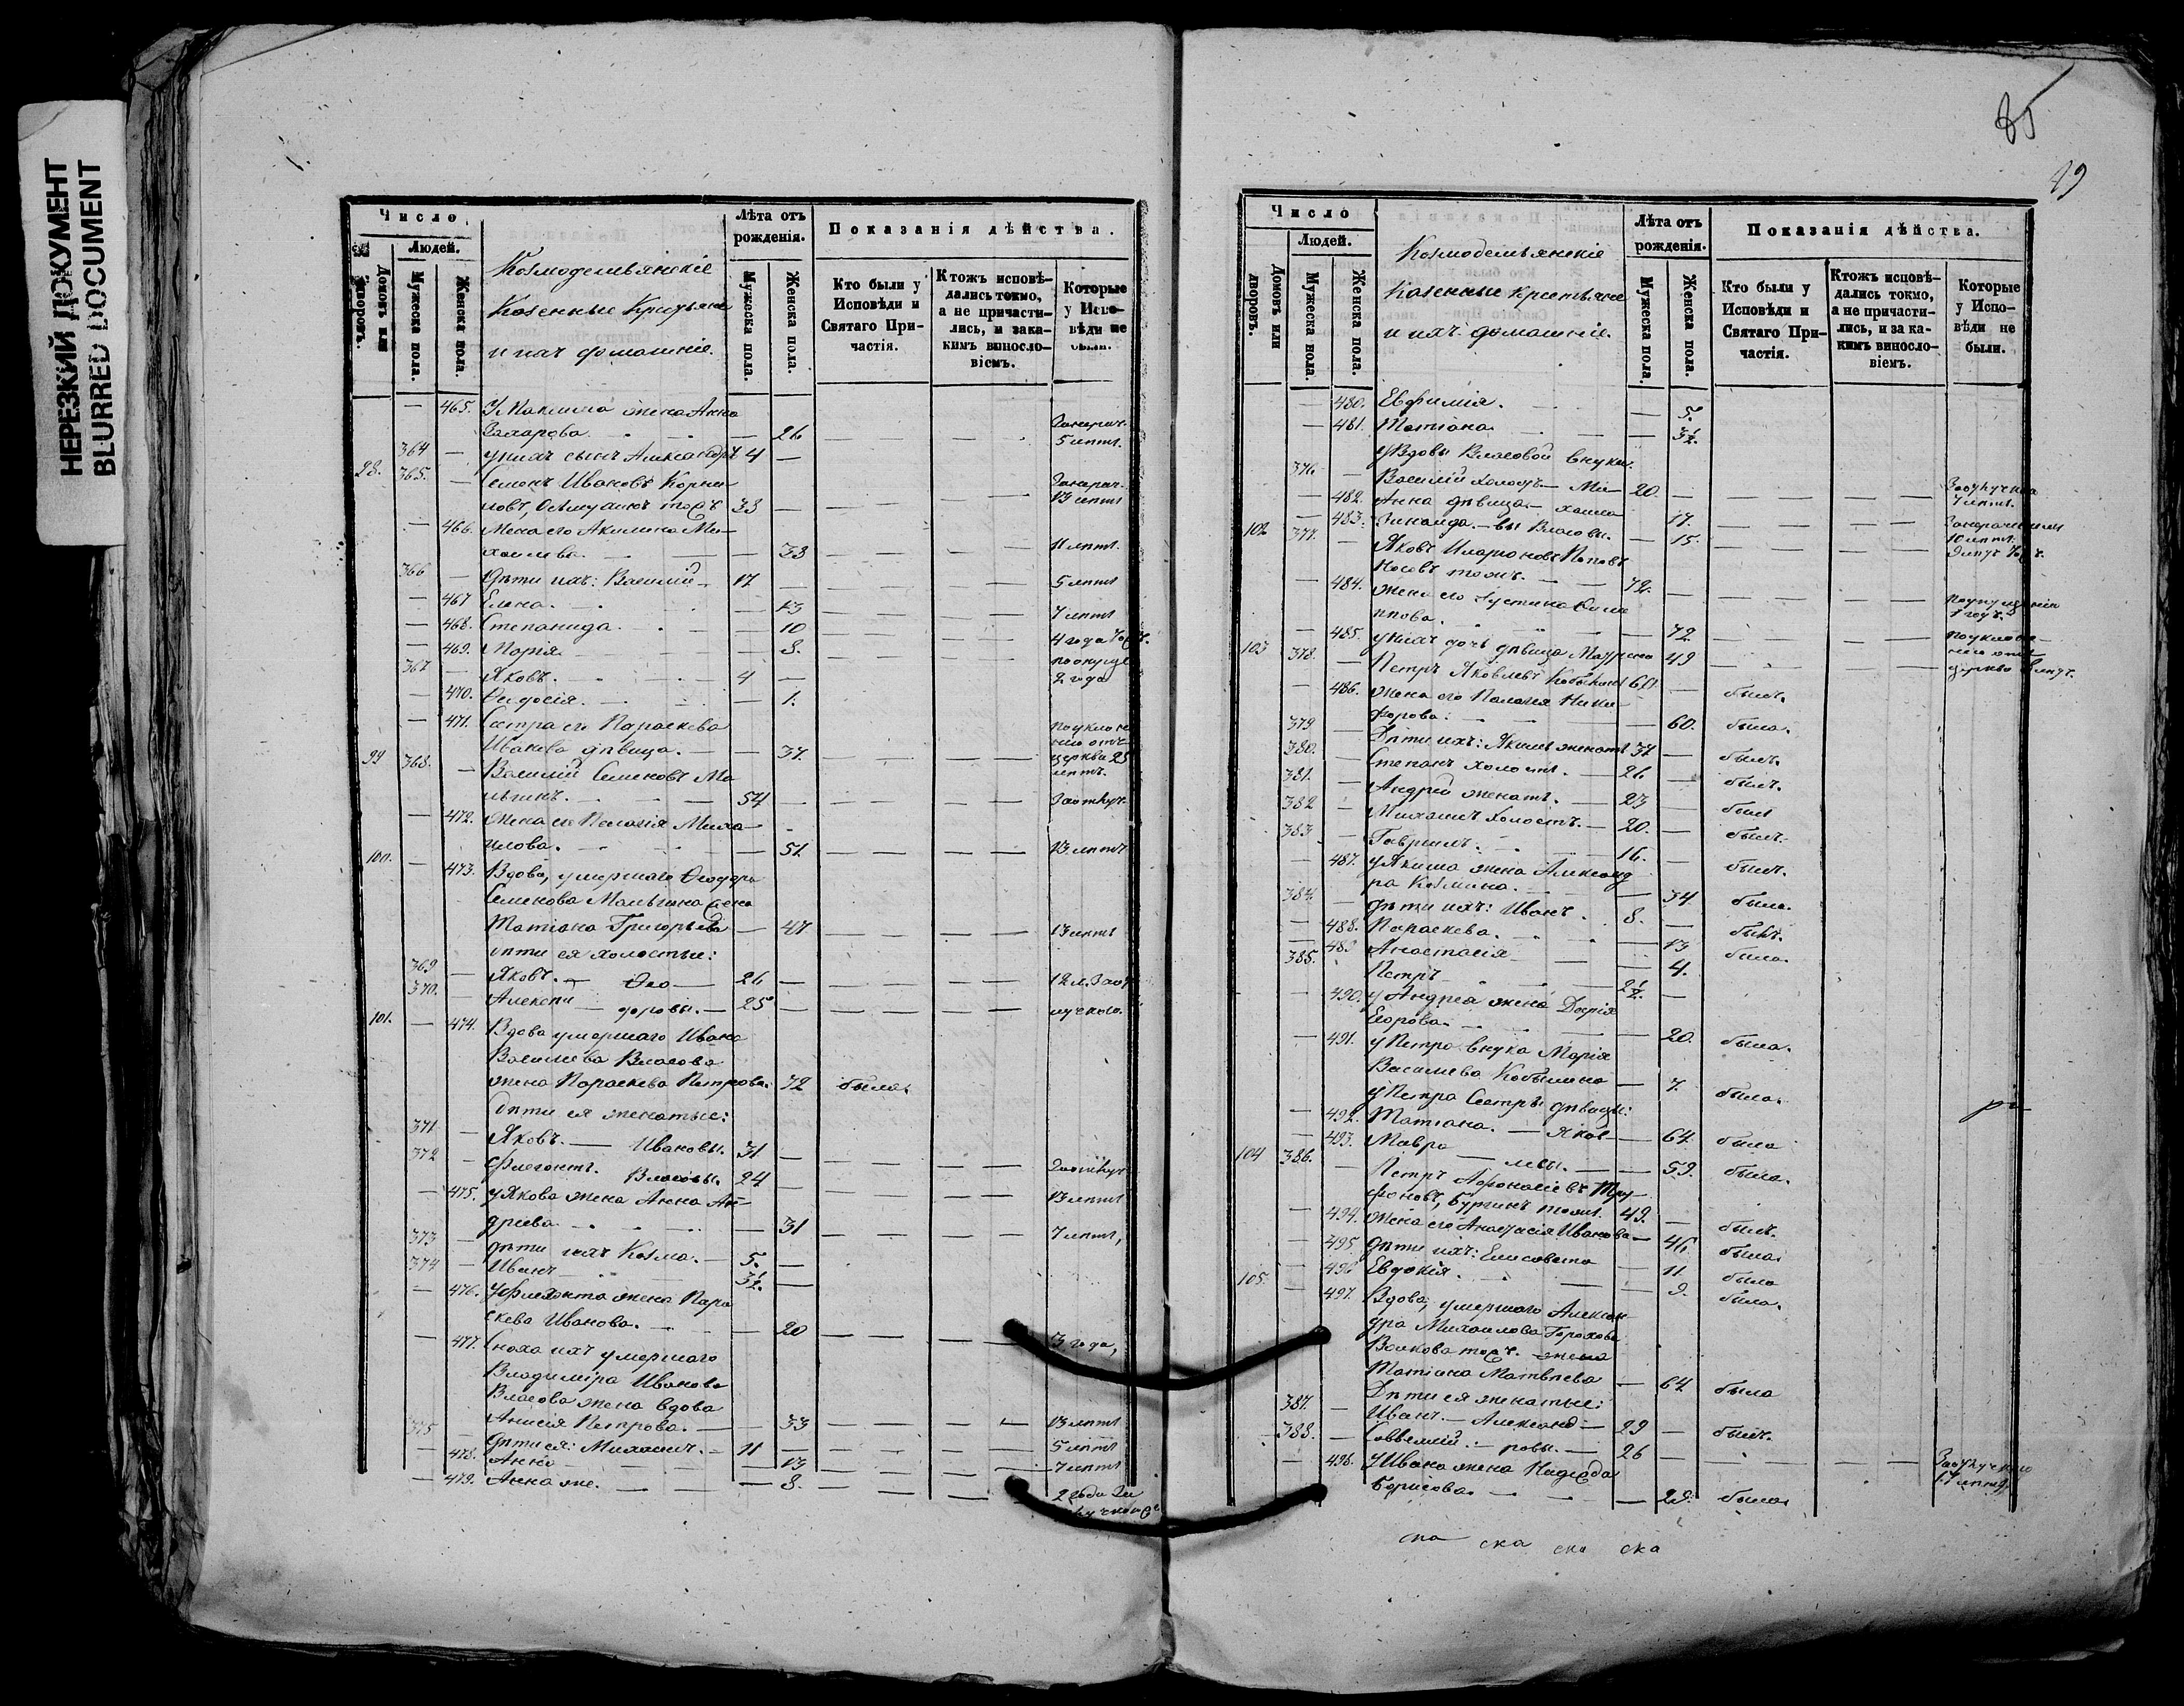 НЕРЕЗКИЙ ДОКУМЕНТ
BLURRED DOCUMENT
Число
Людей.
Домовъ или дворовъ.
Мужеска пола.
Женска пола.
Козмодемьянскіе
Казенные Крестьяне
и ихъ домашніе.
Лѣта отъ рожденія.
Мужеска пола.
Женска пола.
Показанія дѣйства.
Кто были у Исповѣди и Святаго Причастія.
Ктожъ исповѣдались токмо, а не причастились, и за какимъ винословіемъ.
Которые у Исповѣди не были.
— 465. У Максима жена Анна
Захарова. — 26 — — —
5 лѣтъ.
364 — у нихъ сынъ Александръ 4 —
98. 365. — Семенъ Ивановъ
33 — — — 13 лѣтъ
— 466. Жена его Акилина Ми-
хаилова. — 33 — — — 11 лѣтъ.
366 — Дѣти ихъ: Василий 17 — — — 5 лѣтъ
— 467 Елена. — 13 — — — 7 лѣтъ
— 468. Степанида. — 10 — — — 4 года
— 469. Марія — 8. — — —
367 — Яковъ. 4 — 2 года
— 470. Ѳеодосія. — 1.
— 471. Сестра его Параскева
Иванова дѣвица. — 37. — — — церкви 25
лѣтъ.
99 368. — Василій Семеновъ Ма
лыгинъ. 54 — — —
— 472. Жена его Пелагія Миха-
илова. — 51. — — — 13 лѣтъ
100. — 473. Вдова, умершаго Ѳеодора
Семенова Малыгина жена
Матіана Григорьева — 47 — — — 13 лѣтъ
дѣти ея холостые:
369 — Яковъ. — Ѳео- 26 — — — 12 л.
370. — Алексѣй — доровы. 25 — — —
101. — 474. Вдова умершаго Ивана
Васильева Власова
жена Параскева Петрова. 72 была.
дѣти ея женатые:
371 — Яковъ. — Ивановы. 31. —
372 — Флегонтъ. Власовы. 24 —
— 475. у Якова жена Анна Ан- 13 лѣтъ
дреева. — 31 — — — 7 лѣтъ,
373 — дѣти ихъ Козма. 5. —
374 — Иванъ 3½. —
— 476. у Флегонта жена Пара
скева Иванова. — 20 — — — 3 года,
— 477. Сноха ихъ умершаго
Владиміра Иванова
Власова жена вдова
Анисія Петрова. — 33 — — — 13 лѣтъ
375 — дѣти ея: Михаилъ. 11 — — — 5 лѣтъ
— 478. Анна — 13 — — — 7 лѣтъ
— 479. Анна же. — 8. — — — 2 года
85
19
Число
Людей.
Домовъ или дворовъ.
Мужеска пола.
Женска пола.
Козмодемьянскіе
Казенные крестьяне
и ихъ домашніе.
Лѣта отъ рожденія.
Мужеска пола.
Женска пола.
Показанія дѣйства.
Кто были у Исповѣди и Святаго Причастія.
Ктожъ исповѣдались токмо, а не причастились, и за какимъ винословіемъ.
Которые у Исповѣди не были.
— 480. Евфимія. — 5.
— 481. Матіана. — 3½.
у Вдовы Власовой внуки.
376. — Василій холостъ — Ми- 20. — — —
7 лѣтъ.
— 482. Анна дѣвица — хаила 17. — — —
— 483. Зинаида. — вы Власовы. — 15. — — — 10 лѣтъ.
102 377. — Яковъ Иларіоновъ Поповъ
Носовъ тожъ. 72. — — —
— 484. Жена его Іустина Фили
ппова. — 72. — — — 1 годъ.
— 485. у нихъ дочь дѣвица Маѳрена 49
103 378. — Петръ Яковлевъ Кобылинъ 60. — былъ.
— 486. Жена его Пелагія Ники-
форова: — 60. была.
379 — Дѣти ихъ: Якимъ женатъ 37 — былъ.
380. — Степанъ холостъ. — 26 — былъ.
381. — Андрей женатъ. — 23 — былъ
382 — Михаилъ холостъ. — 20. — былъ.
383 — Гавріилъ. — 16. — былъ.
— 487. у Якима жена Александ
ра Козмина. — 34 была.
384. — дѣти ихъ: Иванъ. 8. — былъ.
— 488. Параскева. — 13 была.
— 489 Анастасія — 4.
385. Петръ 2½. —
— 490. у Андрея жена Дарія
Егорова. — 20. была.
— 491. у Петра внука Марія
Васильева Кобылина — 7. была.
у Петра Сестры дѣвицы:
— 492. Матіана. — Яков- — 64. была
— 493. Мавра — левы. — 59. была.
104 386. — Петръ Афанасіевъ Три-
фоновъ, Бурзинъ тожъ. 49. — былъ.
— 494. Жена его Анастасія Иванова — 46 была.
— 495. дѣти ихъ: Елисавета — 11 была
— 496 Евдокія. — 9. была.
105. — 497. Вдова, умершаго Алексан
дра Михаилова Горохова
Волкова тожъ. жена
Матіана Матвѣева — 64 была
Дѣти ея женатые:
387. — Иванъ. — Александ- 29 — былъ.
388. — Савватій. — ровы. — 26 — — —
17 лѣтъ,
— 498. У Ивана жена Надежда
Борисова. — 29. была.
ска ска ска ска